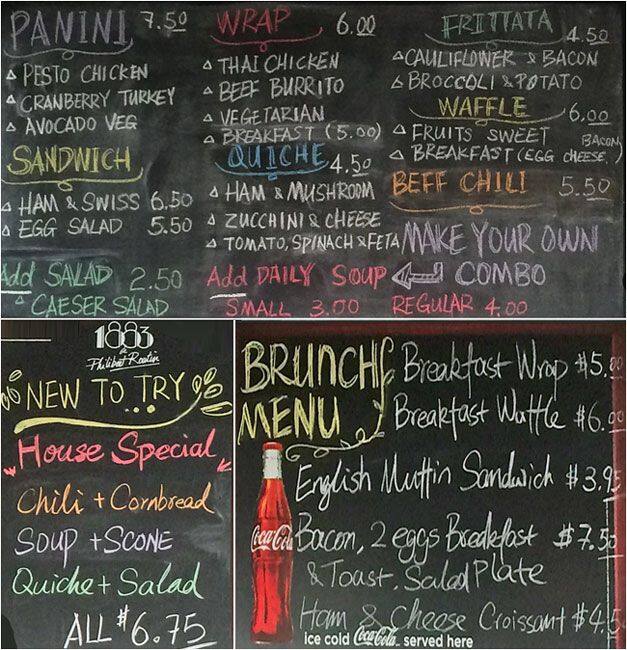 PANINI 7.50
PESTO CHICKEN
CRANBERRY TURKEY
AVOCADO VEG
SANDWICH
HAM & SWISS 6.50
EGG SALAD 5.50
Add SALAD 2.50
CAESER SALAD
WRAP 6.00
THAI CHICKEN
BEEF BURRITO
VEGETARIAN
BREAKFAST (5.00)
QUICHE 4.50
HAM & MUSHROOM
ZUCCHINI & CHEESE
TOMATO, SPINACH & FETA
Add DAILY SOUP
SMALL 3.00 REGULAR 4.00
FRITTATA 4.50
CAULIFLOWER & BACON
BROCCOLI & POTATO
WAFFLE 6.00
FRUITS SWEET
BREAKFAST (EGG CHEESE, BACON)
BEFF CHILI 5.50
MAKE YOUR OWN
COMBO
1883
Philibert Routin
NEW TO TRY
...
House Special
Chili + Cornbread
SOUP + SCONE
Quiche + Salad
ALL $6.75
BRUNCH
MENU
Breakfast Wrap $5.00
Breakfast Waffle $6.00
English Muffin Sandwich $3.95
Bacon, 2 eggs Breakfast $7.50
& Toast, Salad Plate
Ham & Cheese Croissant $4.5
Coca-Cola
ice cold Coca-Cola served here